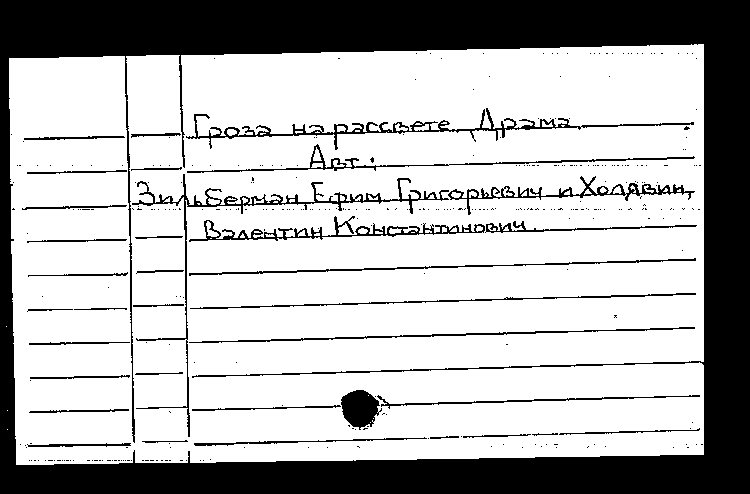 Гроза на рассвете. Драма.
Авт.:
Зильберман, Ефим Григорьевич и Холявин,
Валентин Константинович.